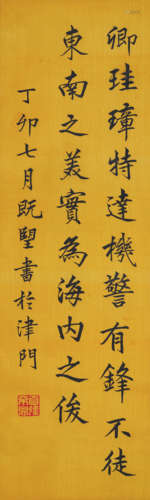 卿珪璋特達機警有鋒不徒
東南之美實為海内之俊
丁卯七月既望書於津門